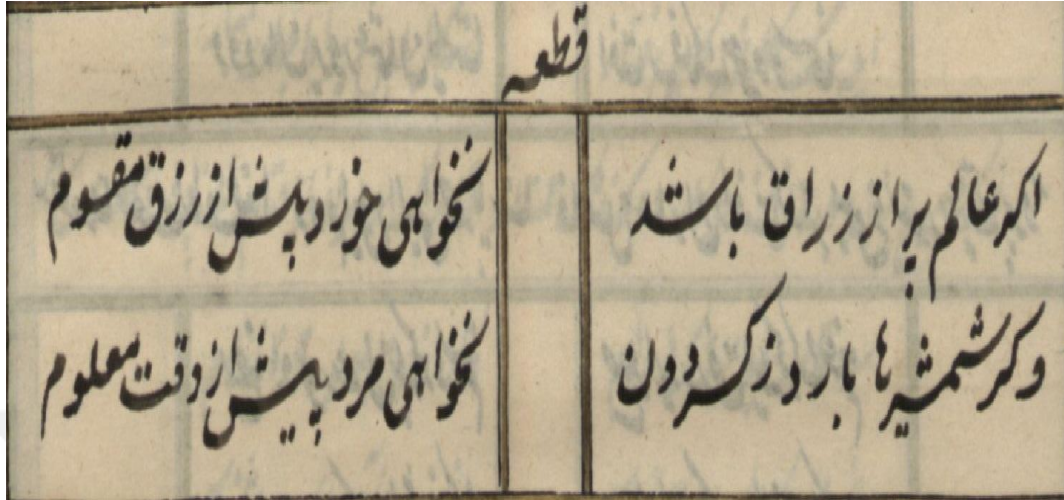 قطعه
اکر عالم پر از زراق باشد نخواهی خورد پیش از رزق مقسوم
وکر شمشیرها بارد ز کردون نخواهی مرد پیش از وقت معلوم